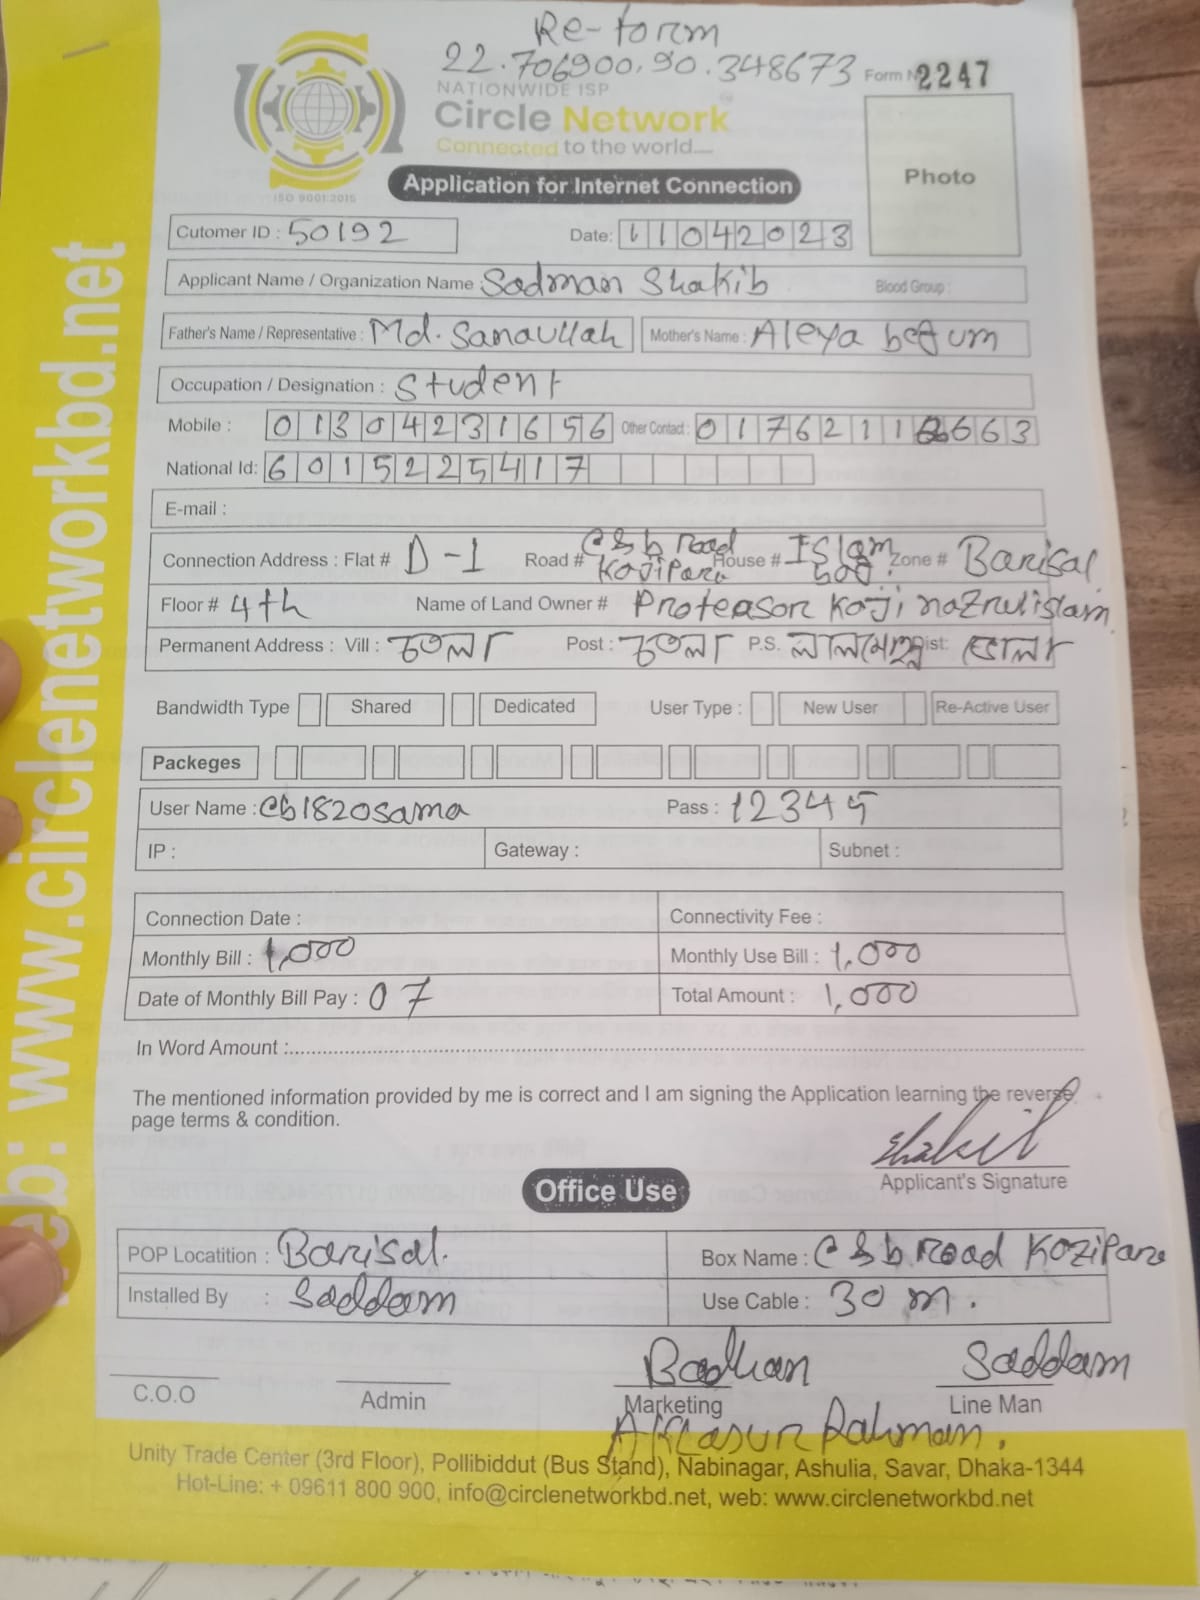 Re-form
22.706900,90.348673
Form N 2247
NATIONWIDE ISP
Circle Network
Connected to the world....
ISO 9001:2015
Application for Internet Connection
Photo
Cutomer ID : 50192 Date: 11042023
Applicant Name / Organization Name : Sadman Shakib Blood Group :
Father's Name / Representative : Md. Sanaullah Mother's Name : Aleya begum
Occupation / Designation : Student
Mobile : 01304231656 Other Contact : 0176211 663
National Id: 6015225417
E-mail :
Connection Address : Flat # D-1 Road # C&b road Kojipara House # Islam bag. Zone # Barisal
Floor # 4th Name of Land Owner # Proteason Kaji nazrulislam
Permanent Address : Vill : চতলা Post : চতলা P.S. লালমোহন Dist: ভোলা
Bandwidth Type Shared Dedicated User Type : New User Re-Active User
Packeges
User Name : cb1820sama Pass : 12345
IP : Gateway : Subnet :
Connection Date : Connectivity Fee :
Monthly Bill : 1,000 Monthly Use Bill : 1,000
Date of Monthly Bill Pay : 07 Total Amount : 1,000
In Word Amount :
The mentioned information provided by me is correct and I am signing the Application learning the reverse
page terms & condition.
Shakib
Applicant's Signature
Office Use
POP Locatition : Barisal. Box Name : C&b Road Kozipara
Installed By : Saddam Use Cable : 30 m.
Badhan Saddam
C.O.O Admin Marketing Line Man
Rahman.
Unity Trade Center (3rd Floor), Pollibiddut (Bus Stand), Nabinagar, Ashulia, Savar, Dhaka-1344
Hot-Line: + 09611 800 900, info@circlenetworkbd.net, web: www.circlenetworkbd.net
eb: www.circlenetworkbd.net